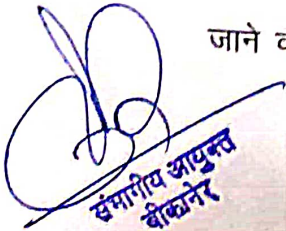 जाने व
संभागीय आयुक्त
बीकानेर